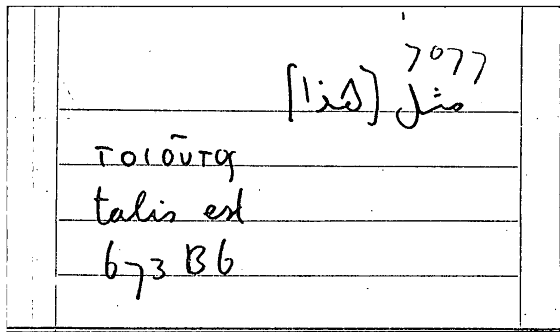 7077
مثل [هذا]
τοιοῦτος
talis est
673 B6